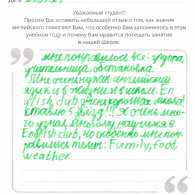 Уважаемый студент!
Просим Вас оставить небольшой отзыв о том, как знания
английского помогают Вам, что особенно Вам запомнилось в этом
учебном году и почему Вам нравится посещать занятия
в нашей Школе.
мне понравилось все: игра,
учительница, обстановка.
Мне очень нужен английский
язык и в жизни и в школе. En
glish club очень хорошая школа!
ставлю 5 звёзд!!! Я очень мно-
го узнал, многому научился в
English club, но особенно мне пон-
равились темы: Family, food
weather.